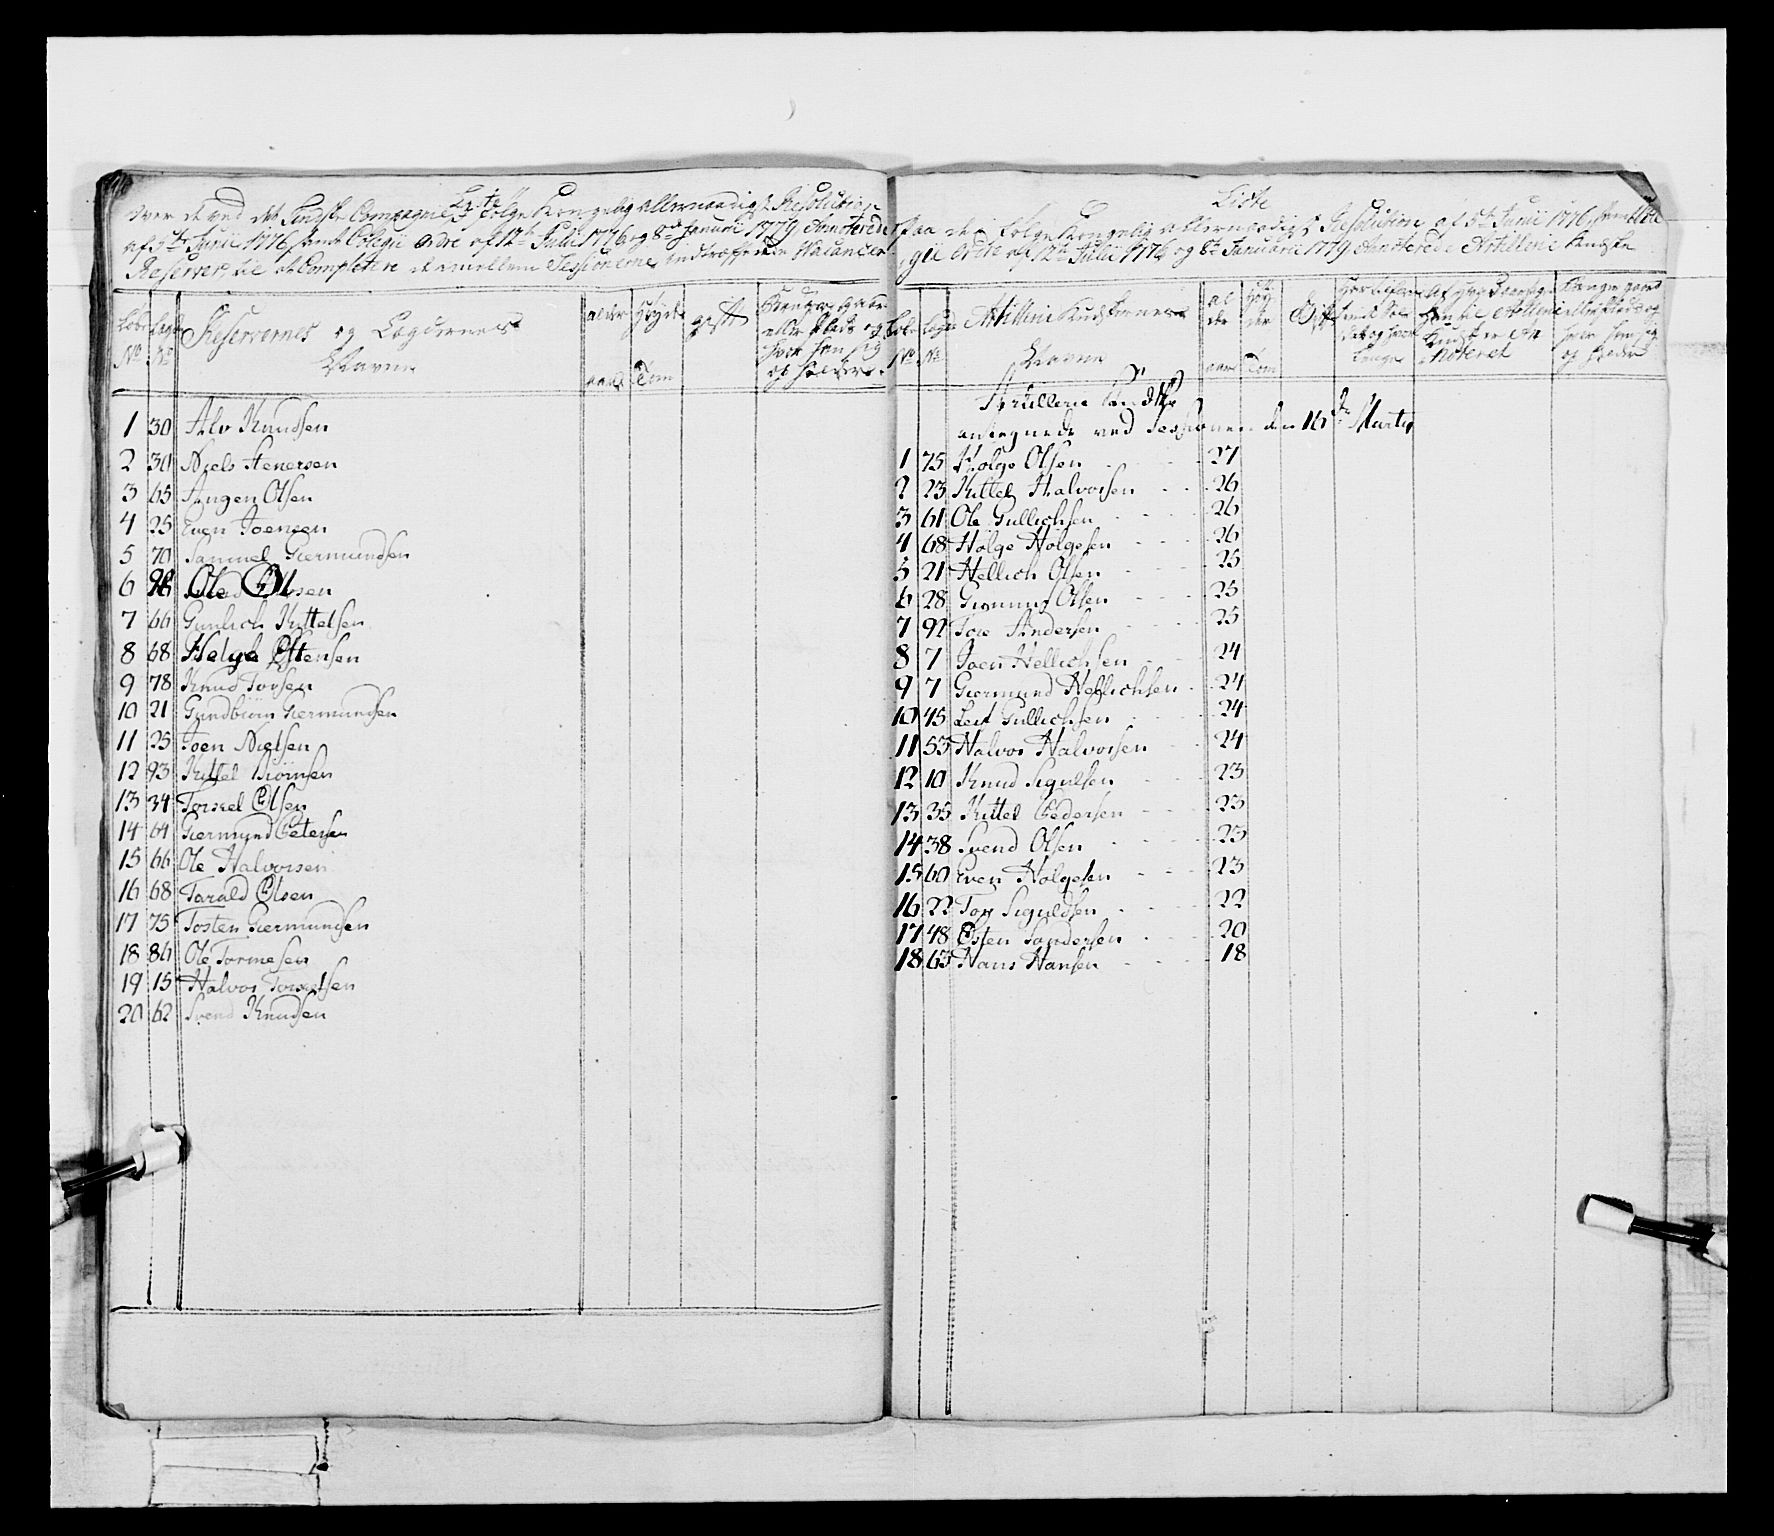 Liste
over de ved det Compagnie følge Kongelig allernaadigst Resolution
af 5te Junii 1776, samt Colegii ordre af 12te Julii 1776 og 8de Januarii 1779 Anoterede
Reserver, til at Completere de imellem Sessionerne indtreffende Vacancer
Løbe No
Lægd No
Reservernes og Lægdernes Navne
alder aar
Høyde Tom
gift
1 30 Alv Knudsen
2 30 Niels Stenersen
3 65 Augen Olsen
4 25 Even Joensen
5 70 Samuel Giermundsen
6 Ole Olsen
7 66 Gunlich Kittelsen
8 68 Helge Estensen
9 78 Knud Torsen
10 21 Gundbiörn Giermundsen
11 25 Joen Nielsen
12 93 Kittel Biörnsen
13 34 Torkel Olsen
14 64 Giermund Petersen
15 66 Ole Halvorsen
16 68 Tarald Olsen
17 75 Tosten Giermundsen
18 86 Ole Tormesen
19 15 Halvor Torkelsen
20 62 Svend Knudsen
Liste
Paa de i følge Kongelig allernaadigst Resolution af 5te Junii 1776, samt Colle
gii ordre af 12te Julii 1776 og 8de Januarii 1779 Anoterede Artillerie Kudske
Løbe No
Lægd No
Artillerie Kudskernes Navne
alder aar
Høyder Tom
Gift
Artillerie Kudske
antegnede ved Sessionen den 16de Martij
1 75 Holge Olsen 27
2 23 Kittel Halvorsen 26
3 61 Ole Gullichsen 26
4 68 Holge Holgesen 26
5 21 Hellich Olsen 25
6 28 Gunnuf Olsen 25
7 92 Tore Andersen 25
8 7 Joen Hellichsen 24
9 7 Giermund Hellichsen 24
10 45 Leif Gullichsen 24
11 53 Halvor Halvorsen 24
12 10 Knud Sigulsen 23
13 35 Kittel Pedersen 23
14 38 Svend Olsen 23
15 60 Even Holgesen 23
16 22 Tor Siguldsen 22
17 48 Esten Sandersen 20
18 63 Hans Hansen 18